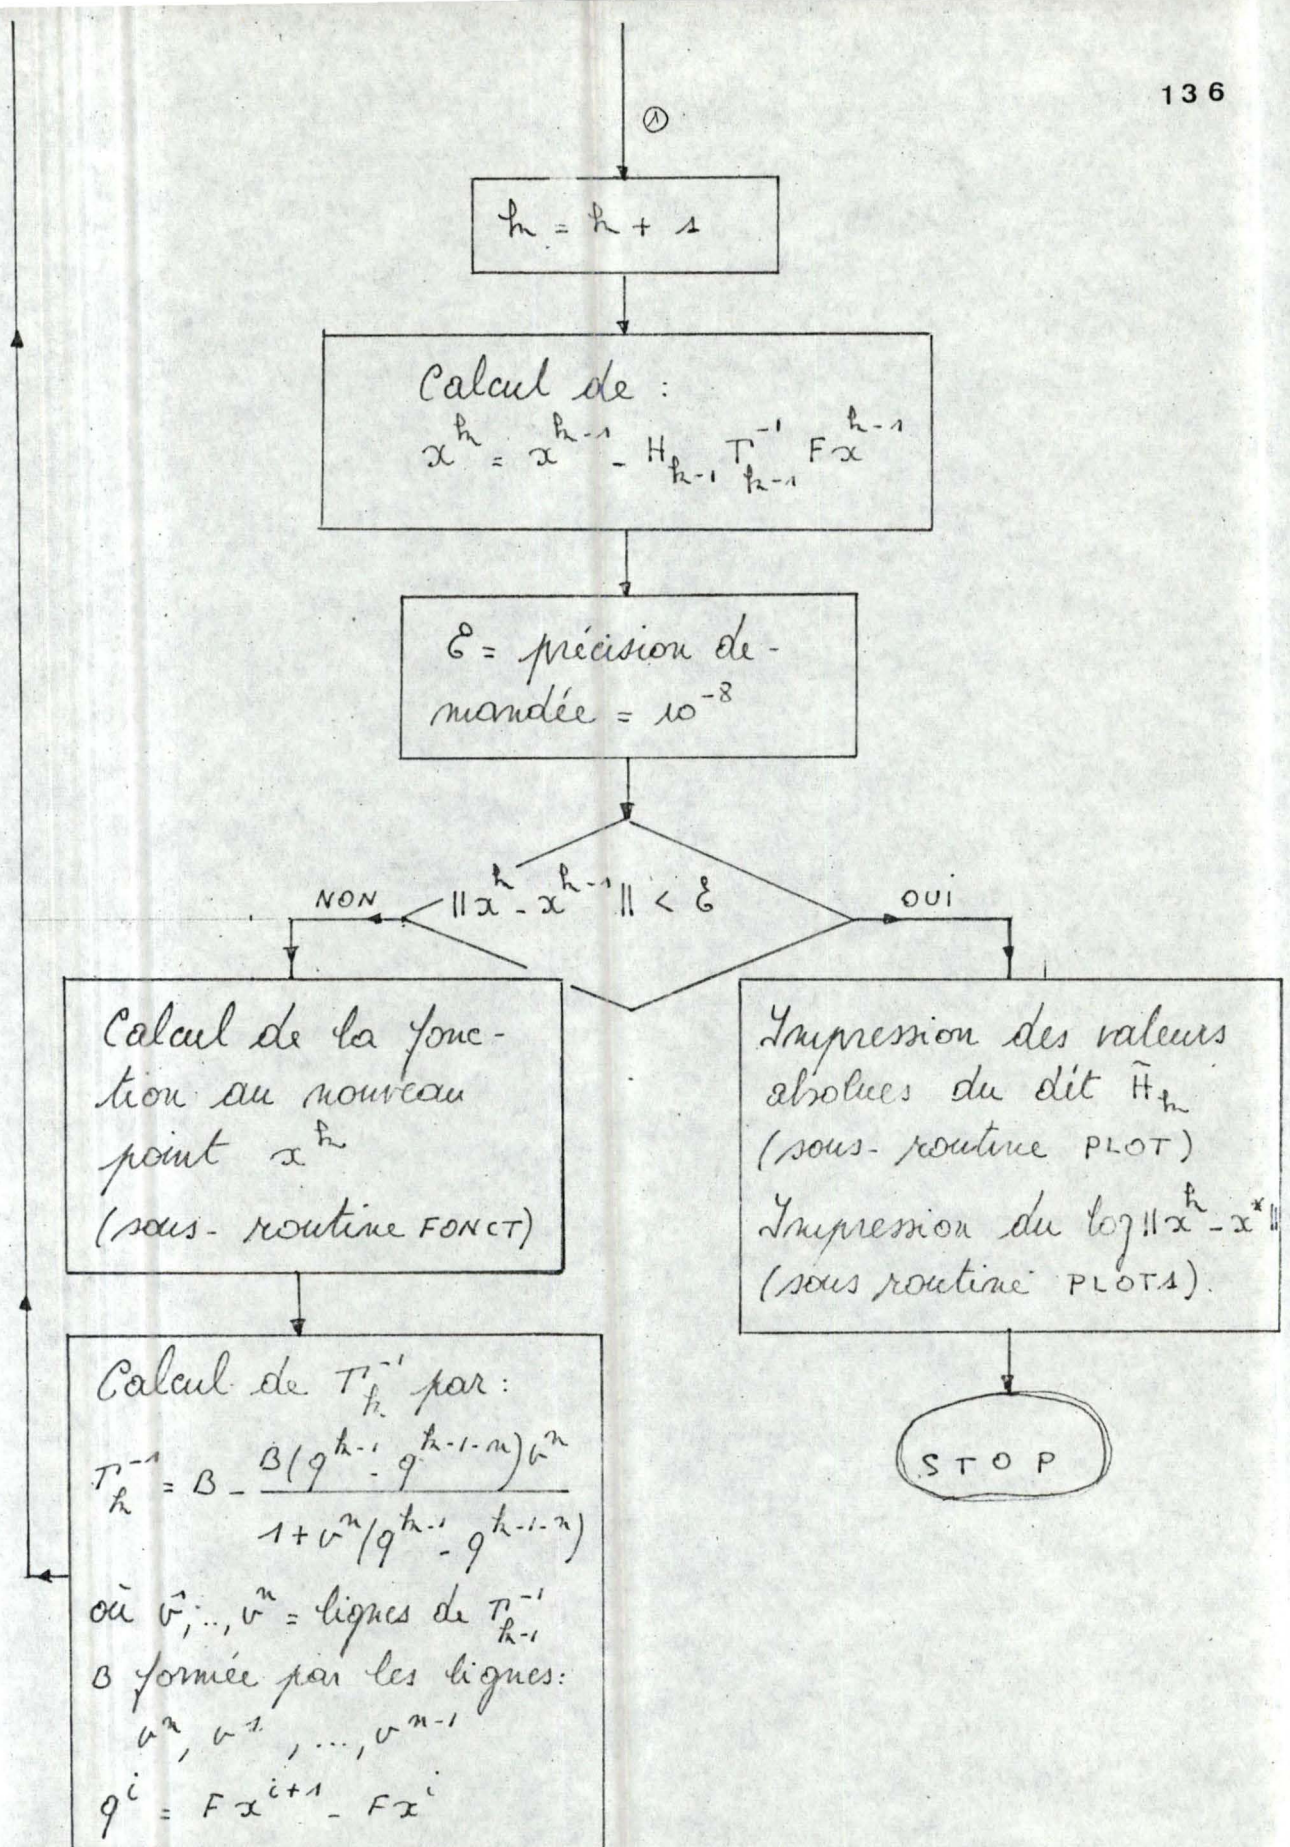 136
①
k = k + 1
Calcul de :
x^k = x^{k-1} - H_{k-1} T^{-1}_{k-1} F x^{k-1}
ε = précision de-
mandée = 10^{-8}
NON
||x^k - x^{k-1}|| < ε
OUI
Calcul de la fonc-
tion au nouveau
point x^k
(sous-routine FONCT)
Impression des valeurs
absolues du dét H̃_k
(sous-routine PLOT)
Impression du log ||x^k - x^*||
(sous routine PLOT1).
Calcul de T_k^{-1} par :
T_k^{-1} = B - \frac{B(q^{k-1} - q^{k-1-n})v^n}{1 + v^n(q^{k-1} - q^{k-1-n})}
où v^1, .., v^n = lignes de T^{-1}_{k-1}
B formée par les lignes:
v^n, v^1, ..., v^{n-1}
q^i = F x^{i+1} - F x^i
STOP